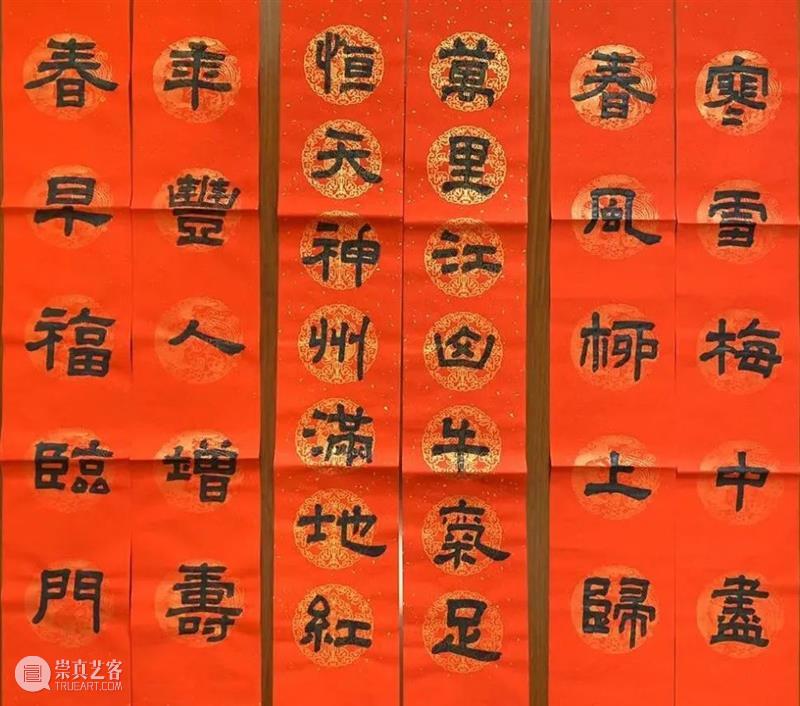 寒雪梅中盡
春風柳上歸
萬里江山牛氣足
恒天神州滿地紅
年豐人增壽
春早福臨門
崇真艺客
TRUEART.COM